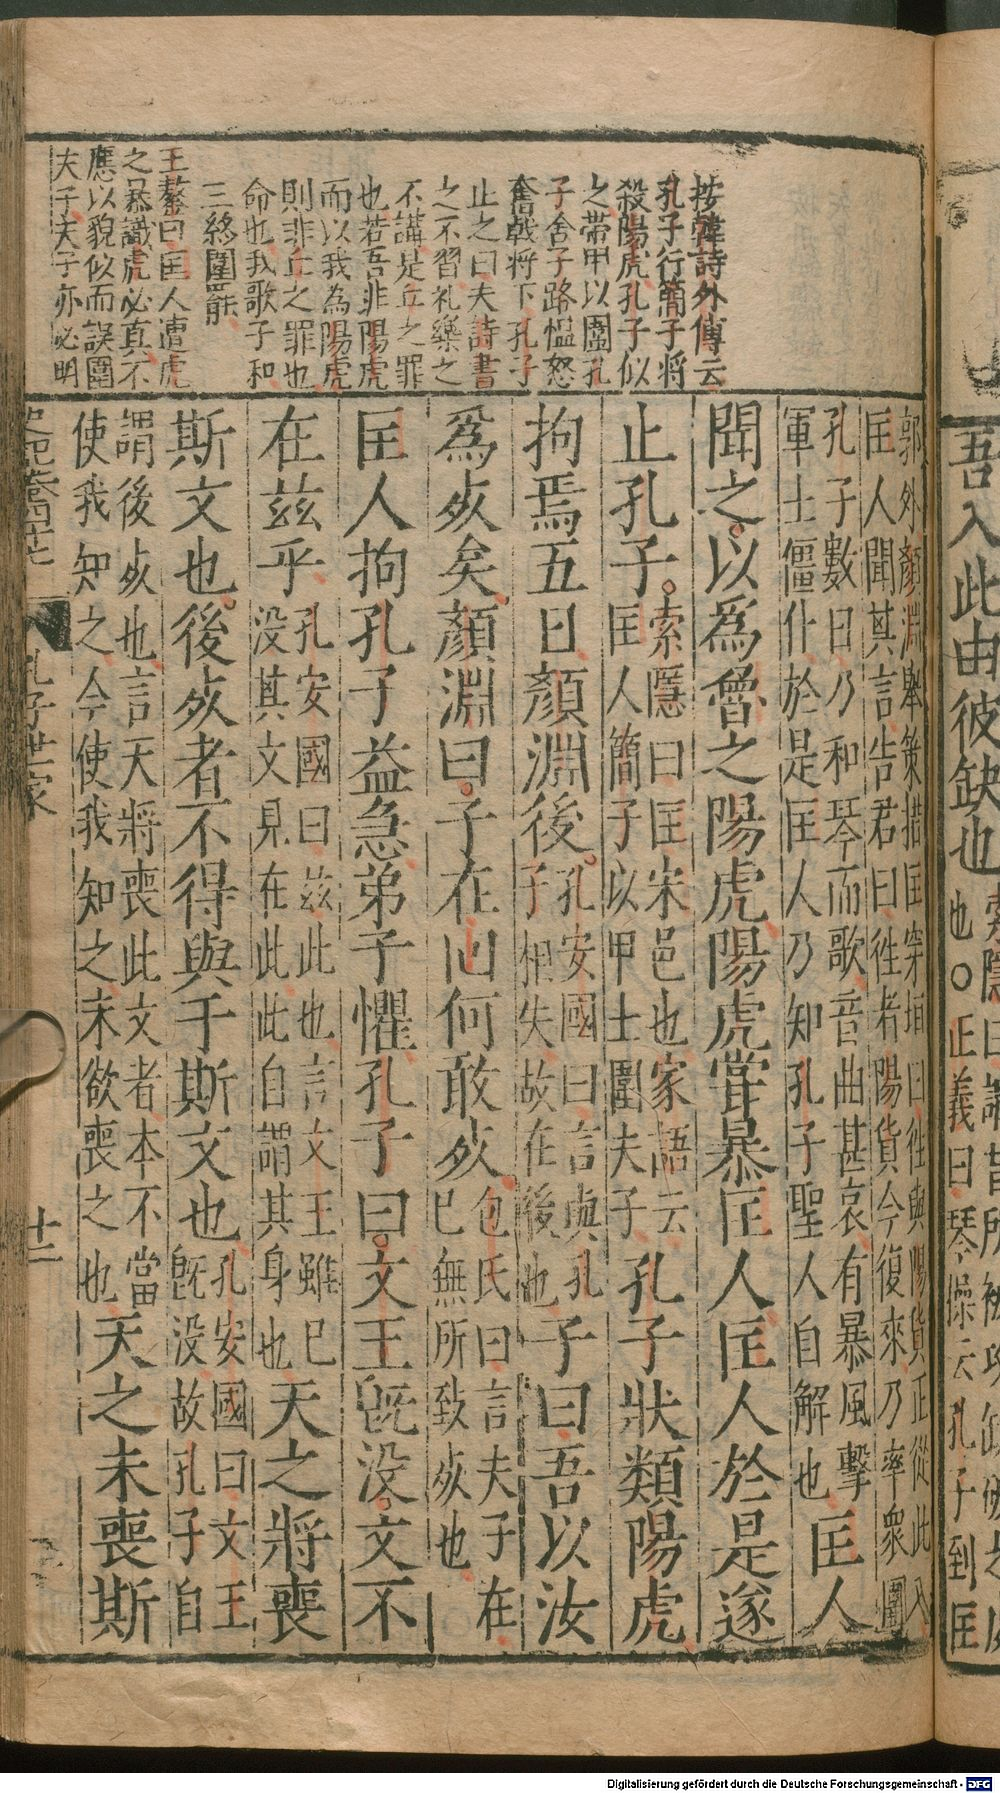 按韓詩外傳云
孔子行簡子將
殺陽虎孔子似
之帶甲以圍孔
子舍子路慍怒
奮戟將下孔子
止之曰夫詩書
之不習礼樂之
不講是丘之罪
也若吾非陽虎
而以我為陽虎
則非丘之罪也
命也我歌子和
三終圍罷
王鏊曰匡人遭虎
之暴識虎必真不
應以貌似而誤圍
夫子夫子亦必明
吾入此由彼缺也
也〇正義曰琴操云孔子到匡
郭外顏淵舉策指匡穿垣曰往與陽貨正從此入
匡人聞其言告君曰往者陽貨今復來乃率衆圍
孔子數日乃和琴而歌音曲甚哀有暴風擊
軍士僵仆於是匡人乃知孔子聖人自解也匡人
聞之以爲魯之陽虎陽虎嘗暴匡人匡人於是遂
止孔子索隱曰匡宋邑也家語云
匡人簡子以甲士圍夫子孔子狀類陽虎
拘焉五日顏淵後孔安國曰言與孔
子相失故在後也子曰吾以汝
爲死矣顏淵曰子在回何敢死包氏曰言夫子在
已無所致死也
匡人拘孔子益急弟子懼孔子曰文王旣没文不
在兹乎孔安國曰兹此也言文王雖已
没其文見在此此自謂其身也天之將喪
斯文也後死者不得與于斯文也孔安國曰文王
旣没故孔子自
謂後死也言天將喪此文者本不當
使我知之今使我知之未欲喪之也天之未喪斯
孔子世家
十二
Digitalisierung gefördert durch die Deutsche Forschungsgemeinschaft - DFG